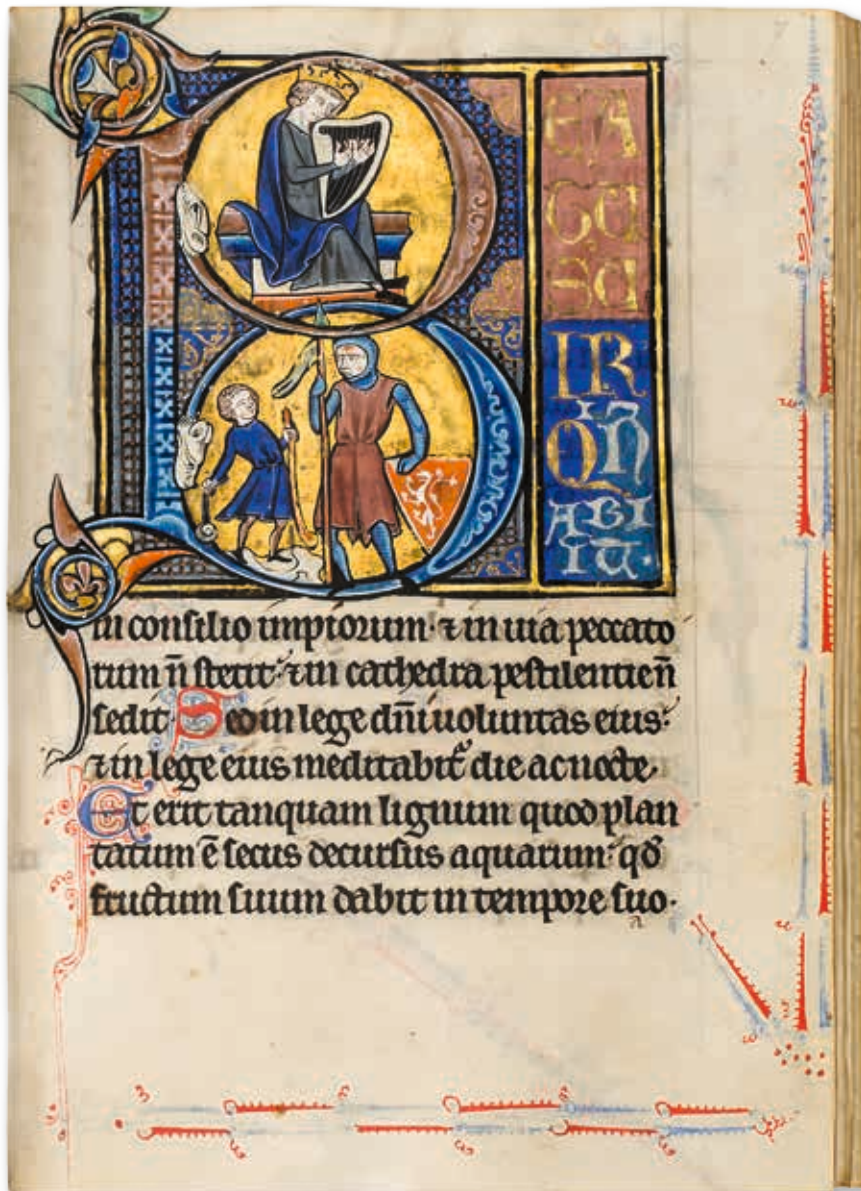 B
EA
TUS U
IR
QI N
ABI
IT.
in consilio impiorum· ⁊ in uia peccato
rum n̄ stetit· ⁊ in cathedra pestilentie n̄
sedit· Sed in lege dn̄i uoluntas eius·
⁊ in lege eius meditabit᷑ die ac nocte·
Et erit tanquam lignum quod plan
tatum ē secus decursus aquarum· qd̓
fructum suum dabit in tempore suo·